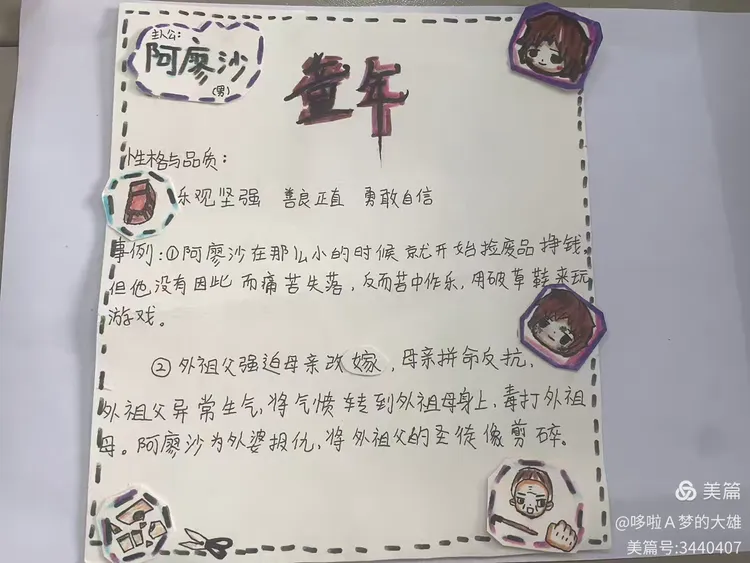 主人公:
阿廖沙
(男)
童年
性格与品质:
乐观坚强 善良正直 勇敢自信
事例:①阿廖沙在那么小的时候就开始捡废品挣钱,
但他没有因此而痛苦失落,反而苦中作乐,用破草鞋来玩
游戏。
②外祖父强迫母亲改嫁,母亲拼命反抗,
外祖父异常生气,将气愤转到外祖母身上,毒打外祖
母。阿廖沙为外婆报仇,将外祖父的圣徒像剪碎。
美篇
@哆啦A梦的大雄
美篇号:3440407